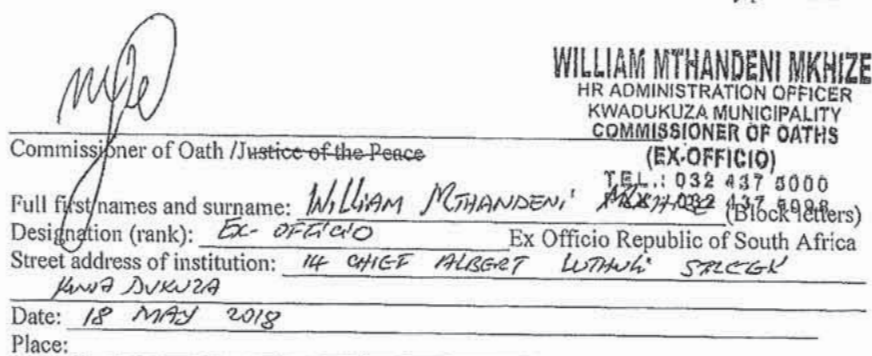 WILLIAM MTHANDENI MKHIZE
HR ADMINISTRATION OFFICER
KWADUKUZA MUNICIPALITY
COMMISSIONER OF OATHS
(EX-OFFICIO)
TEL.: 032 437 5000
Commissioner of Oath /Justice of the Peace
Full first names and surname: WILLIAM MTHANDENI (Block letters)
Designation (rank): EX-OFFICIO Ex Officio Republic of South Africa
Street address of institution: 14 CHIEF ALBERT LUTHULI
KWA DUKUZA
Date: 18 MAY 2018
Place: